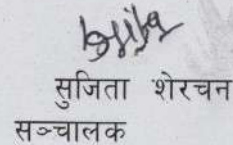 सुजिता शेरचन
सञ्चालक